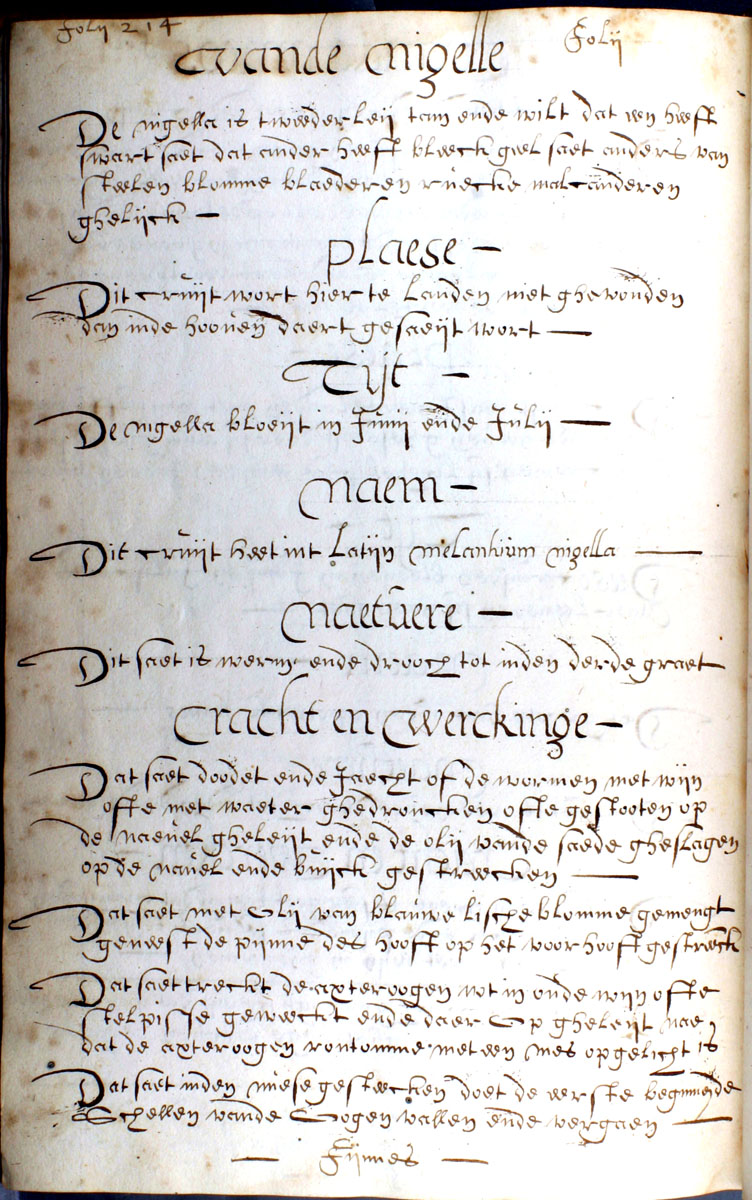 folij 214
folij
vande nigelle
De nigella is tweederleij tam ende wilt dat een heeft
swart saet dat ander heeft bleeck geel saet anders van
steelen blomme blaederen ruecke malcanderen
ghelijck –
plaese –
Dit cruijt wort hier te landen niet ghevonden
dan inde hooven daert gesaeijt wort –
Tijt –
De nigella bloeijt in Junij ende Julij –
naem –
Dit cruijt heet int Latijn melantium nigella –
naetuere –
Dit saet is werm ende drooch tot inden derde graet
cracht en werckinge –
Dat saet doodet ende Jaecht of de wormen met wijn
ofte met waeter ghedroncken ofte gestooten op
de naevel gheleijt ende de olij vande saede gheslagen
op de navel ende buijck gestreecken –
Dat saet met Olij van blauwe lische blomme gemengt
geneest de pijnne des hooft op het voorhooft gestreeck
Dat saet treckt de axteroogen wt in oude wijn ofte
stelpisse geweeckt ende daer Op gheleijt nae
dat de axteroogen rontomme met een mes opgelicht is
Dat saet inden nuese gesteecken doet de eerste beginnende
Schellen vande Oogen vallen ende vergaen –
– Fijnnes –